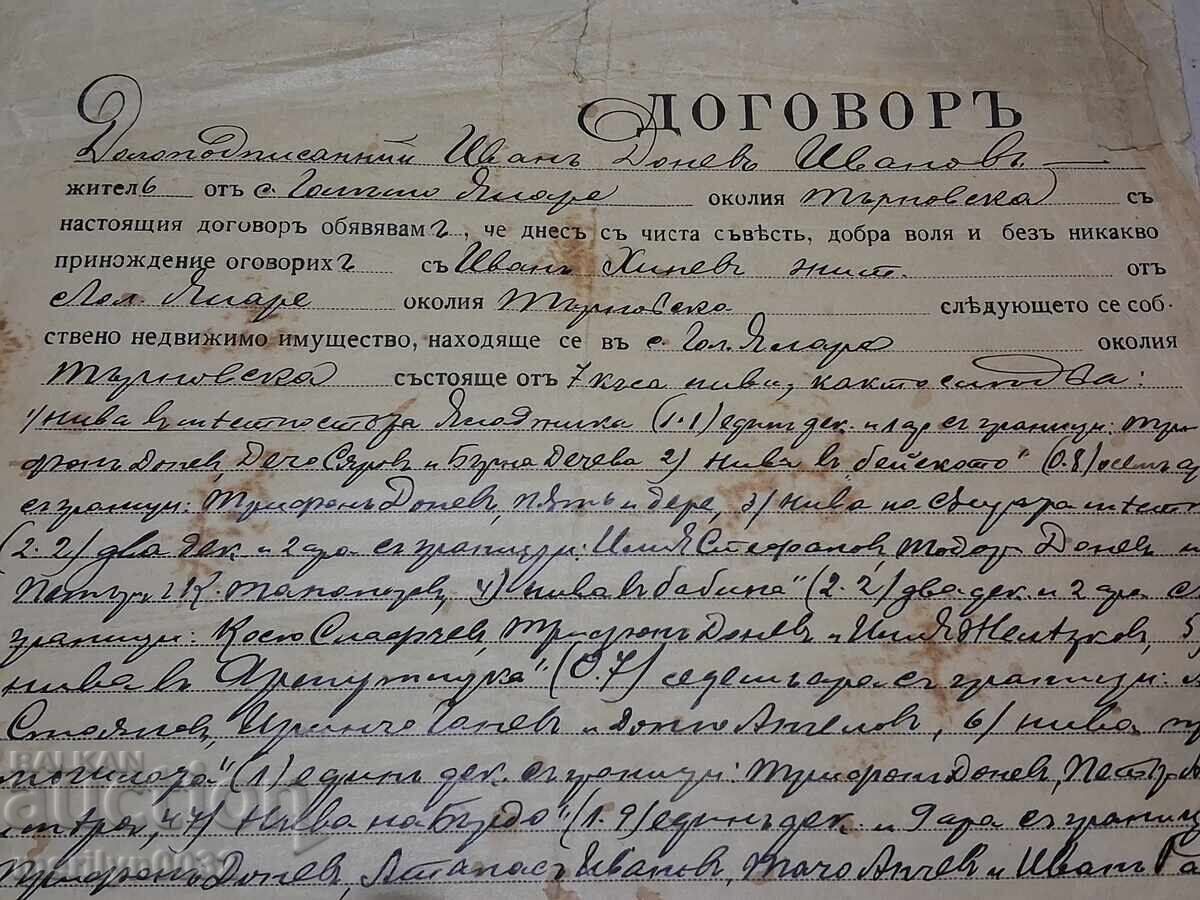 ДОГОВОРЪ
Долоподписанний Иванъ Доневъ Ивановъ
жителЬ отъ с. Голѣмо Яларе околия Търновска съ
настоящия договоръ обявявамъ, че днесъ съ чиста съвѣсть, добра воля и безъ никакво
принождение оговорихъ съ Иванъ Хиневъ жит. отъ
Гол. Яларе околия Търновска следующето се соб-
ствено недвижимо имущество, находяще се въ с. Гол. Яларе околия
Търновска състояще отъ 7 къса ниви, както следва:
1) нива въ местностьта Ягоджика (1.1) единъ дек. и 1 ар съ граници: Три-
фонъ Доневъ, Дечо Сяров и Бърна Дечева 2) нива въ „бейското" (0.8) осемь а
съ граници: Трифонъ Доневъ, пѫть и дере, 3) нива на
(2.2) два дек. и 2 ара съ граници: Илия Стефановъ, Тодоръ Доневъ и
Петъръ К. 4) нива въ „бабина" (2.2) два дек. и 2 ара съ
граници: Косю Славчевъ, Трифонъ Доневъ и Илия Желѣзковъ, 5)
нива въ (0.7) седемь ара съ граници:
Стояновъ, Ганевъ и Донто Ангеловъ, 6) нива
могилата" (1) единъ дек. съ граници: Трифонъ Доневъ, Петъръ
7) Нива на Бърдо" (1.9) единъ дек. и 9 ара съ границ
Трифонъ Доневъ, Атанасъ Ивановъ, Тачо Анчев и Иванъ
BALKAN
auction
marilyn0032